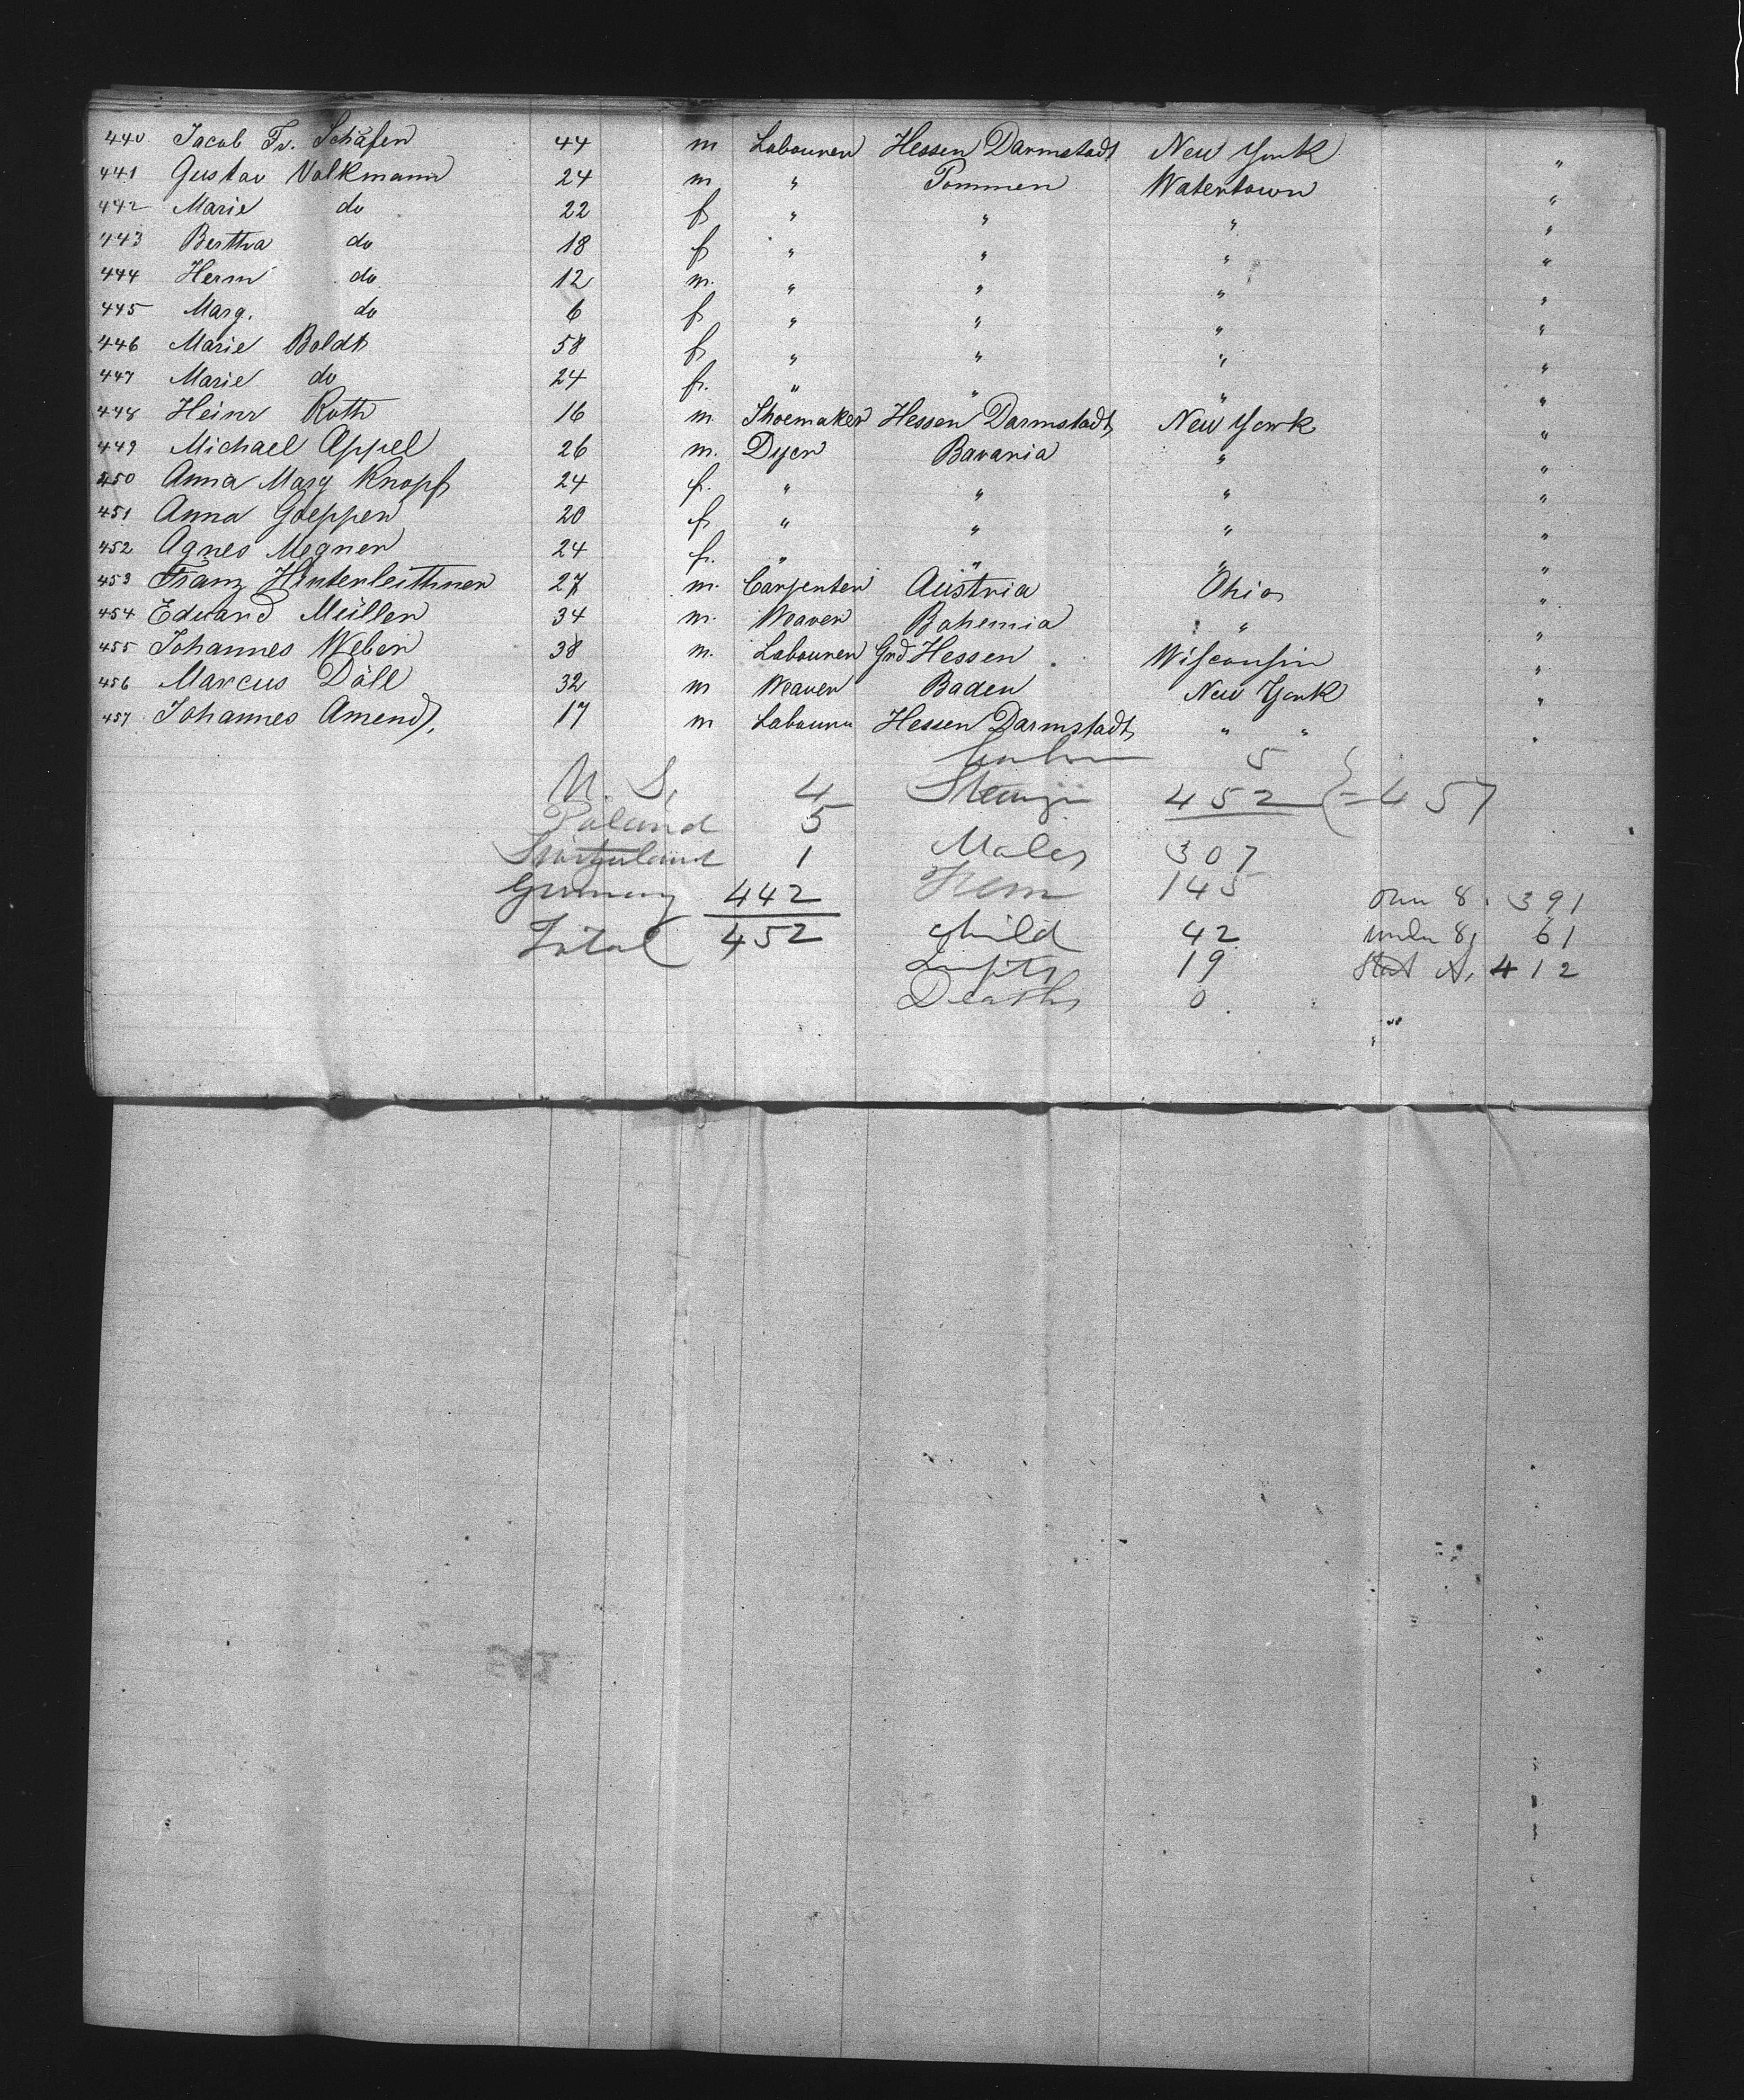 440 Jacob Fr. Schäfer 44 m Labourer Hessen Darmstadt New York "
441 Gustav Volkmann 24 m " Pommern Watertown "
442 Marie do 22 f " " " "
443 Bertha do 18 f " " " "
444 Herm do 12 m. " " " "
445 Marg. do 6 f " " " "
446 Marie Boldt 58 f " " " "
447 Marie do 24 f. " " " "
448 Heinr Roth 16 m Shoemaker Hessen Darmstadt New York "
449 Michael Appel 26 m. Dyer Bavaria " "
450 Anna Marg Knopf 24 f. " " " "
451 Anna Goepper 20 f " " " "
452 Agnes Megner 24 f. " " " "
453 Franz Hinterleithner 27 m. Carpenter Austria Ohio "
454 Eduard Müller 34 m. Weaver Bohemia " "
455 Johannes Weber 38 m. Labourer Grd Hessen Wisconsin "
456 Marcus Döll 32 m Weaver Baden New York "
457 Johannes Amend 17 m Labourer Hessen Darmstadt " " "
Cabin 5
U. S. 4 Steerge 452 } = 457
Poland 5
Switzerland 1 Males 307
Germany 442 Fem 145 over 8. 391
Total 452 Child 42 under 8, 61
Infts 19 412
Deaths 0